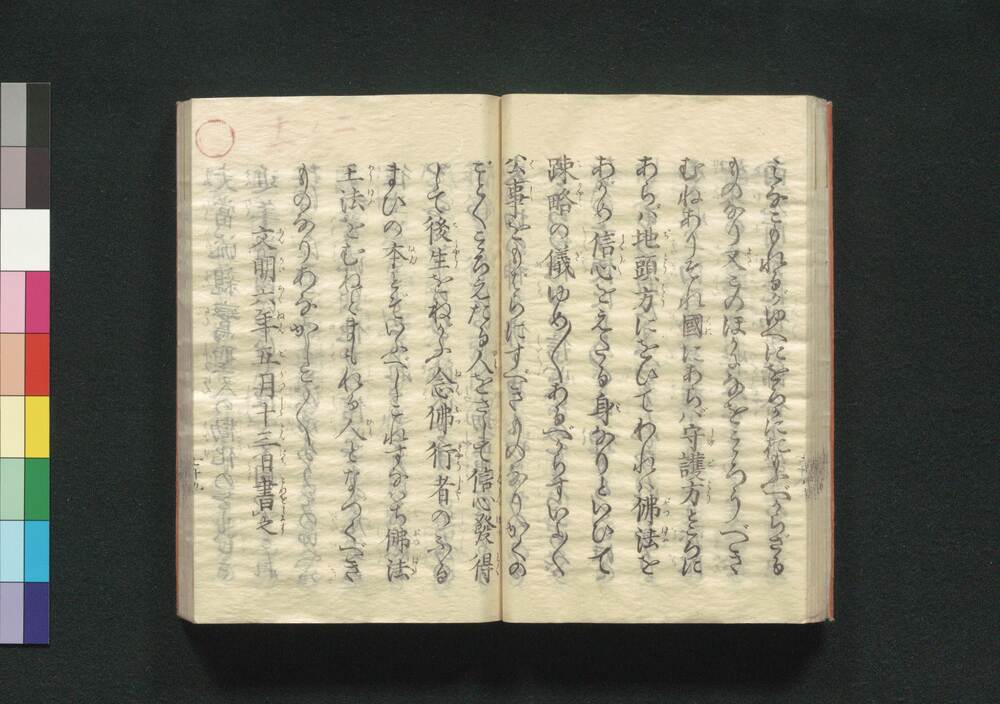 みなこもれるがゆへにをろそかにおもふべからざる
ものなり又このほかになをこゝろうべき
むねありそれ國にあらば守護方ところに
あらば地頭方にをひてわれは佛法を
あがめ信心をえたる身なりといひて
疎略の儀ゆめ〳〵あるべからずいよ〳〵
公事をもはらにすべきものなりかくの
ごとくこゝろえたる人をさして信心發得
して後生をねがふ念佛行者のふる
まひの本とぞいふべしこれすなはち佛法
王法をむねとまもれる人となづくべき
ものなりあなかしこ〳〵
文明六年五月十三日書之